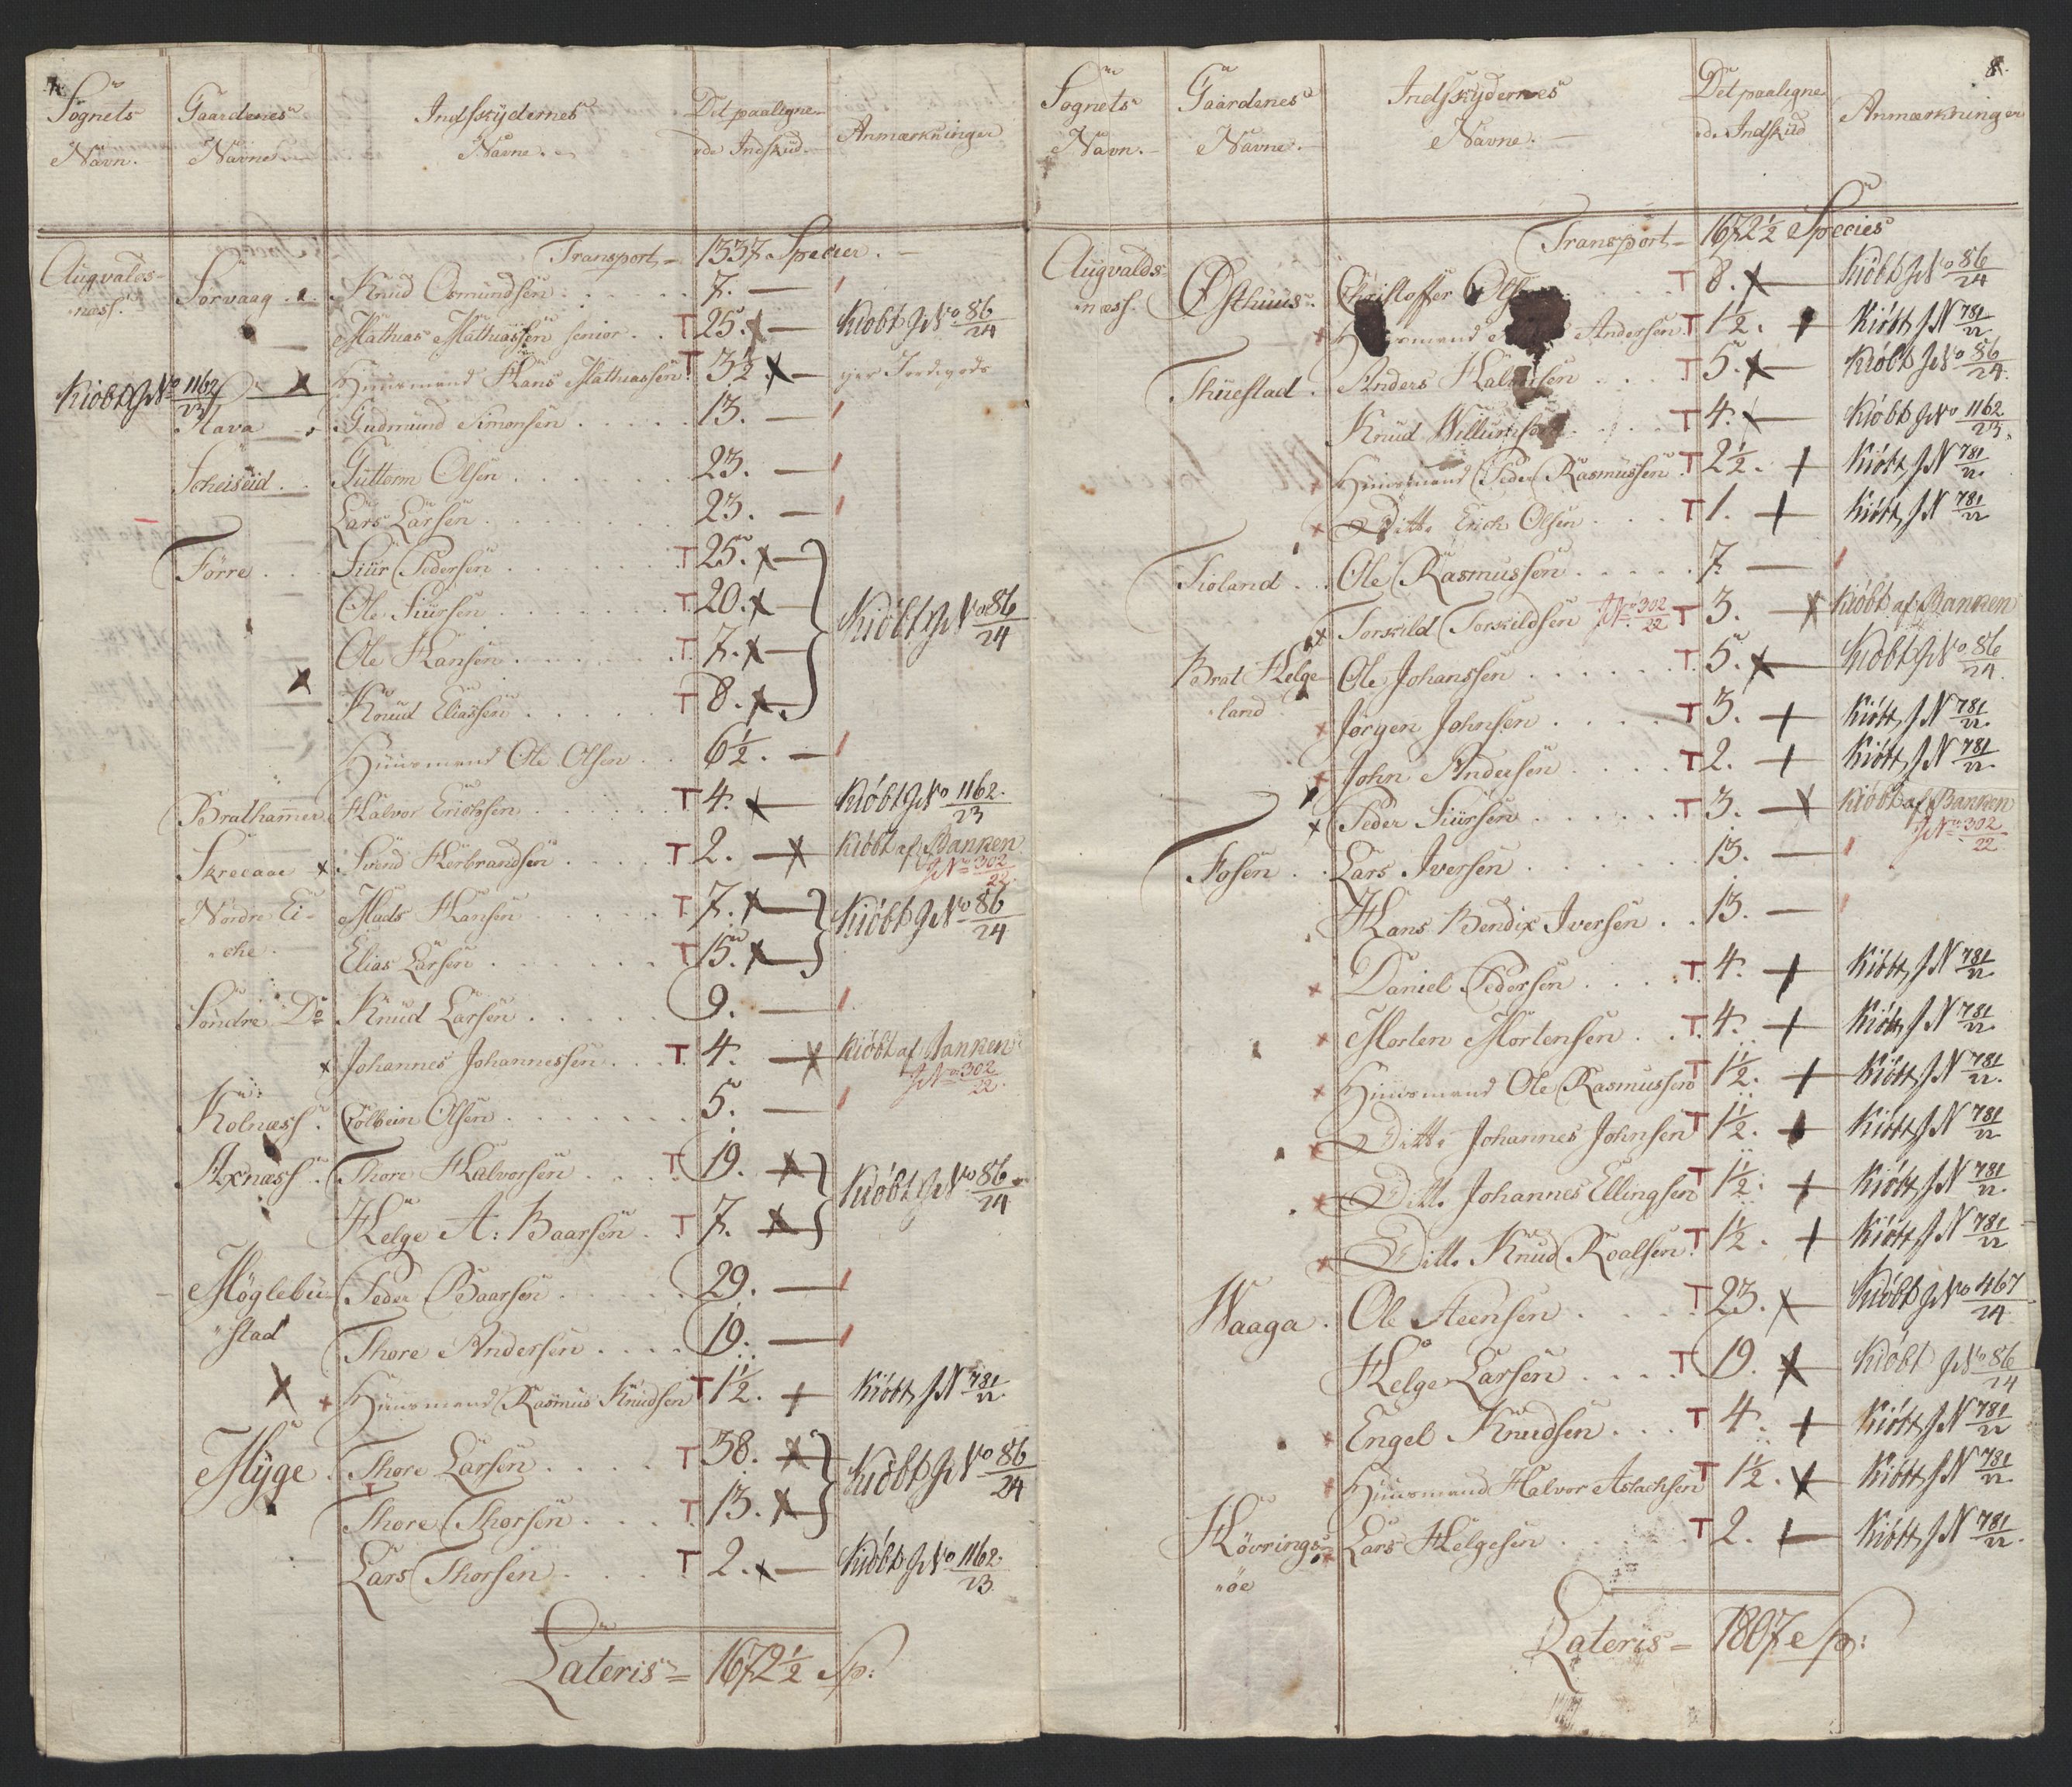 7.
Sognets Navn. Gaardenes Navne. Indskydernes Navne. Det paaligne-de Indskud. Anmærkninger
Transport 1337 Specier.
Augvalds-næss. Sørvaag Knud Osmundsen 7. —
Mathias Mathiassen senior T 25. x — Kiöbt J No 86/24
Kiöbt J No 1162/23 x Huusmand Hans Mathiassen T 3½ x — ejer Jordegods
Hava Gudmund Simonsen 13. —
Scheiseid Guttorm Olsen 23. —
Lars Larsen 23. —
Førre Siur Pedersen T 25. x —
Ole Siursen T 20. x —
Kiöbt J No 86/24
Ole Hansen T 7. x —
x Knud Eliassen T 8. x —
Huusmand Ole Olsen 6½. —
Brathammer Halvor Erichsen T 4. x — Kiöbt J No 1162/23
Skreeaae x Svend Herbrandsen T 2. — x Kiöbt af Banken J No 302/22.
Nordre Ei-che Mads Hansen T 7. x — Kiöbt J No 86/24
Elias Larsen T 15. x —
Søndre Do Knud Larsen 9. —
x Johannes Johannessen T 4. — x Kiöbt af Banken J No 302/22.
Kolnæss Colbein Olsen 5. —
Axnæss Thore Halvorsen T 19. x — Kiöbt J No 86/24
Helge A: Baarsen T 7. x —
Møglebu-stad Peder Baarsen 29. —
Thore Andersen 19. —
x x Huusmand Rasmus Knudsen T 1½. + Kiött J N 781/22.
Myge Thore Larsen T 38. x — Kiöbt J No 86/24
Thore Thorsen T 13. x —
Lars Thorsen T 2. x — Kiöbt J No 1162/23
Lateris = 1672½ Sp:
8.
Sognets Navn. Gaardenes Navne. Indskydernes Navne. Det paaligne-de Indskud Anmærkninger
Transport 1672½ Species
Augvalds-næss. Østhuus Christoffer T 8. x — Kiöbt J No 86/24
x Andersen T 1½. + Kiött J N 781/22
Thuestad Anders T 5. x — Kiöbt J No 86/24.
Knud Willumsen T 4. x — Kiöbt J No 1162/23.
x Huusmand Peder Rasmussen T 2½. + Kiött J N 781/22.
x Ditto Erich Olsen T 1. + Kiött J N 781/22
Tioland Ole Rasmussen 7. —
x Torskild Torskildsen J No 302/22 T 3. — x Kiöbt af Banken
Brat Helge-land Ole Johanssen T 5. x — Kiöbt J No 86/24.
x Jørgen Johnsen T 3. + Kiött J N 781/22.
x John Andersen T 2. + Kiött J N 781/22.
x Peder Siursen T 3. — x Kiöbt af Banken J No 302/22
Fosen Lars Iversen 13. —
Hans Bendix Iversen 13. —
x Daniel Pedersen T 4. + Kiött J N 781/22
x Morten Mortensen T 4. + Kiött J N 781/22
x Huusmand Ole Rasmussen T 1½. + Kiött J N 781/22.
x Ditto Johannes Johnsen T 1½. + Kiött J N 781/22
x Ditto Johannes Ellingsen T 1½. + Kiött J N 781/22
x Ditto Knud Roalsen T 1½. + Kiött J N 781/22
Waaga Ole Steensen T 23. x — Kiöbt J No 467/24
Helge Larsen T 19. x — Kiöbt J No 86/24
x Engel Knudsen T 4. + Kiött J N 781/22
x Huusmand Halvor Aslachsen T 1½. x Kiött J N 781/22
Høvrings-öe x Lars Helgesen T 2. + Kiött J N 781/22.
Lateris = 1807 Sp: